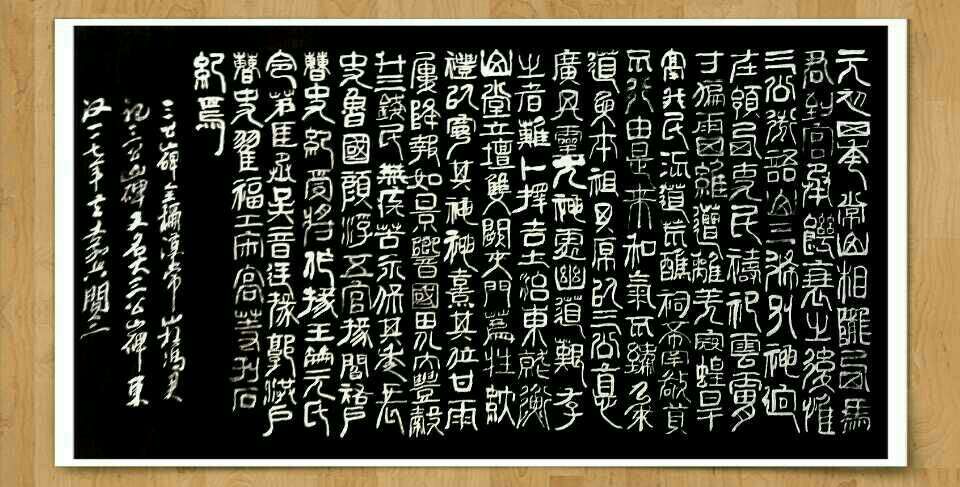 元初四年常山相隴西馮
君到官承饑衰之後惟
三公御語山三條別神迥
在領西吏民禱祀雲膚
寸徧雨四維遭離羌寇蝗旱
鬲我民流道荒醮祠希罕敬奠
不行由是來和氣不臻乃來
道要本祖其原以三公德
廣其靈尤神處幽道艱存
之者難卜擇吉土治東就衡
山堂立壇雙闕夾門薦牲納
禮以寍其神神熹其位甘雨
屢降報如景響國界大豐穀
斗三錢民無疾苦永保其年長
史魯國顏浮五官掾閻祐戶
曹史紀受將作掾王笧元氏
令茅匡丞吳音廷掾郭洪戶
曹史翟福工宋高等刊石
紀焉
三公山碑全稱漢常山相馮君
祀三公山碑又名大三公山碑東
漢一一七年立